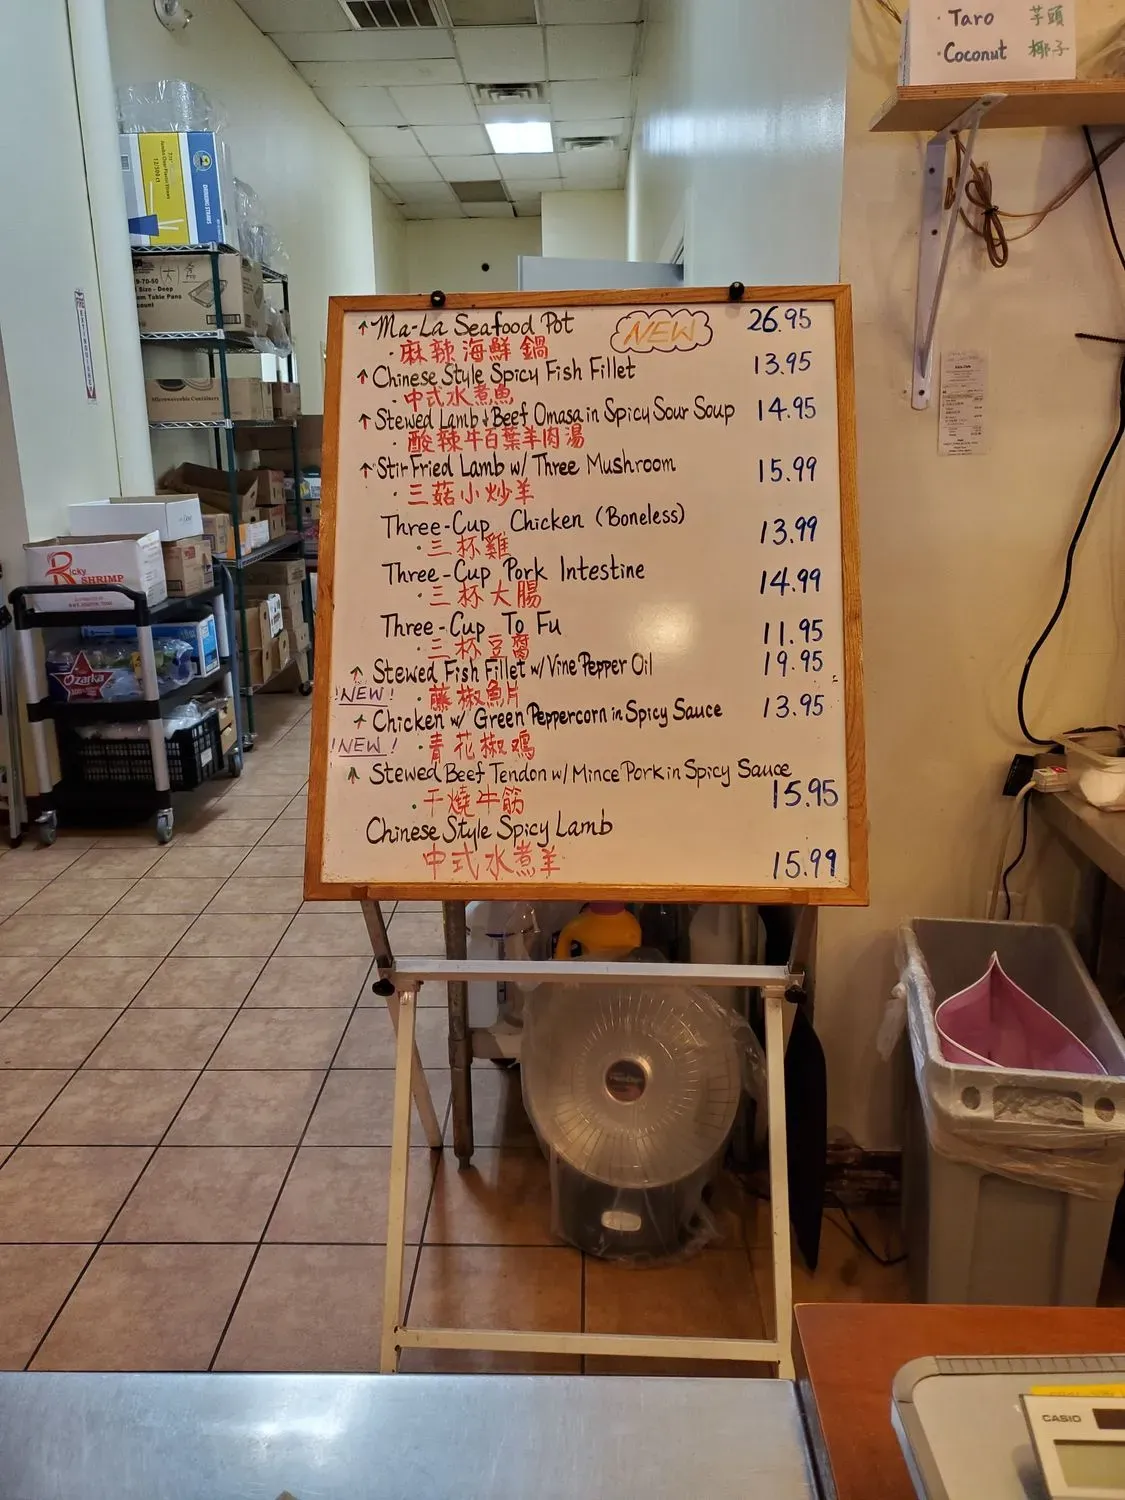 · Taro 芋頭
· Coconut 椰子
↑ Ma-La Seafood Pot NEW 26.95
· 麻辣海鮮鍋
↑ Chinese Style Spicy Fish Fillet 13.95
· 中式水煮魚
↑ Stewed Lamb & Beef Omasa in Spicy Sour Soup 14.95
· 酸辣牛百葉羊肉湯
↑ Stir Fried Lamb w/ Three Mushroom 15.99
· 三菇小炒羊
Three-Cup Chicken (Boneless) 13.99
· 三杯雞
Three-Cup Pork Intestine 14.99
· 三杯大腸
Three-Cup To Fu 11.95
· 三杯豆腐
↑ Stewed Fish Fillet w/ Vine Pepper Oil 19.95
!NEW! · 藤椒魚片
↑ Chicken w/ Green Peppercorn in Spicy Sauce 13.95
!NEW! · 青花椒鸡
↑ Stewed Beef Tendon w/ Mince Pork in Spicy Sauce 15.95
· 干燒牛筋
Chinese Style Spicy Lamb
中式水煮羊 15.99
Size - Deep
am Table Pans
Microwaveable Containers
Ricky
SHRIMP
Ozarka
CASIO